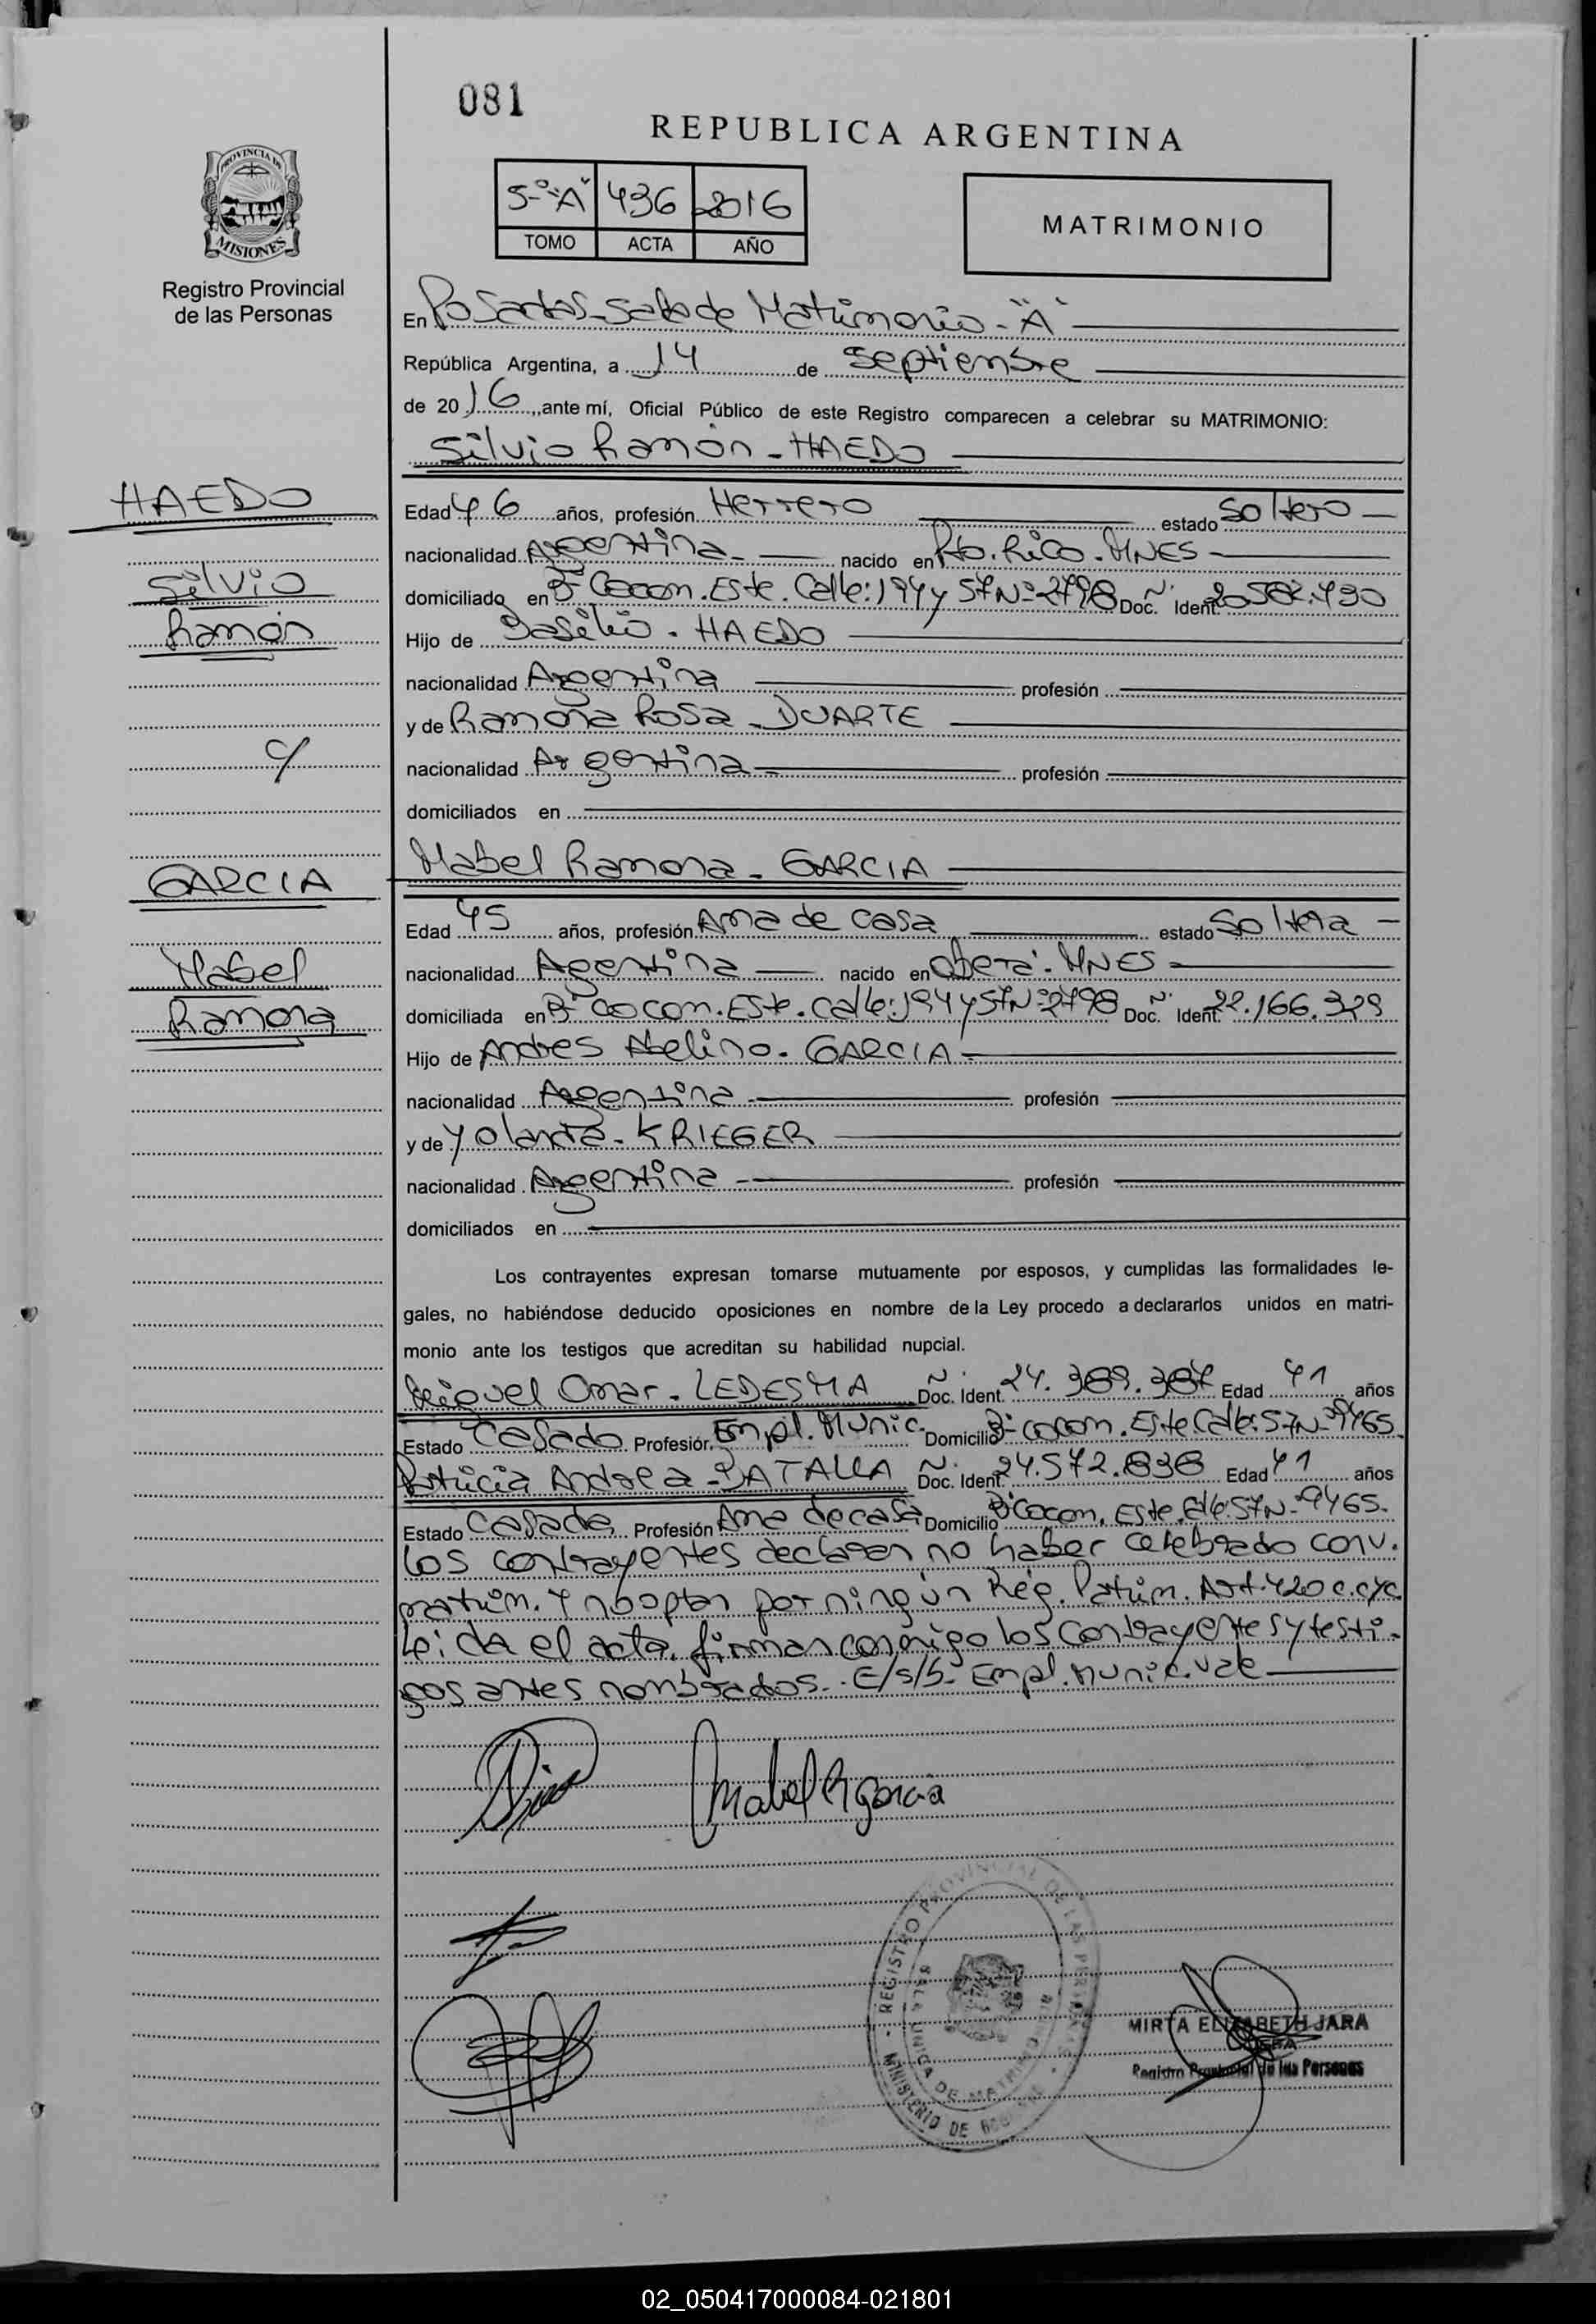 081
REPUBLICA ARGENTINA
5-º "A" 436 2016
TOMO ACTA AÑO
MATRIMONIO
PROVINCIA DE
MISIONES
Registro Provincial
de las Personas
En Posadas-Sala de Matrimonio-"A"
República Argentina, a 14 de Septiembre
de 2016, ante mí, Oficial Público de este Registro comparecen a celebrar su MATRIMONIO:
Silvio Ramón - HAEDO
HAEDO
Silvio
Ramón
c/
GARCIA
Mabel
Ramona
Edad 46 años, profesión Herrero estado Soltero -
nacionalidad Argentina - nacido en Pto. Rico. MNES -
domiciliado en Bº Cocom. Este. Calle: 194 y 57 Nº 2798 Doc. Ident. 20.582.490
Hijo de Basilio. HAEDO
nacionalidad Argentina profesión
y de Ramona Rosa - DUARTE
nacionalidad Argentina - profesión
domiciliados en
Mabel Ramona - GARCIA
Edad 45 años, profesión Ama de casa estado Soltera -
nacionalidad Argentina nacido en Oberá. MNES -
domiciliada en Bº Cocom. Este. Calle: 194 y 57 Nº 2798 Doc. Ident. 22.166.329
Hijo de Andres Abelino. GARCIA -
nacionalidad Argentina - profesión
y de Yolanda - KRIEGER
nacionalidad Argentina - profesión
domiciliados en
Los contrayentes expresan tomarse mutuamente por esposos, y cumplidas las formalidades le-
gales, no habiéndose deducido oposiciones en nombre de la Ley procedo a declararlos unidos en matri-
monio ante los testigos que acreditan su habilidad nupcial.
Miguel Omar - LEDESMA Doc. Ident. 24.389.387 Edad 41 años
Estado Casado Profesión Empl. Munic. Domicilio Bº Cocom. Este Calle: 57 Nº 9465
Patricia Andrea - BATALLA Doc. Ident. 24.572.838 Edad 41 años
Estado Casada Profesión Ama de casa Domicilio Bº Cocom. Este. Calle: 57 Nº 9465.
Los contrayentes declaran no haber celebrado conv.
matrim. y no optan por ningún Rég. Patrim. Art. 420 c.c y c
Leída el acta, firman conmigo los contrayentes y testi-
gos antes nombrados.- E/s/b- Empl. Munic. vale
Mabel R garcia
REGISTRO PROVINCIAL DE LAS PERSONAS
MINISTERIO DE
MIRTA ELIZABETH JARA
Registro Provincial de las Personas
02_050417000084-021801